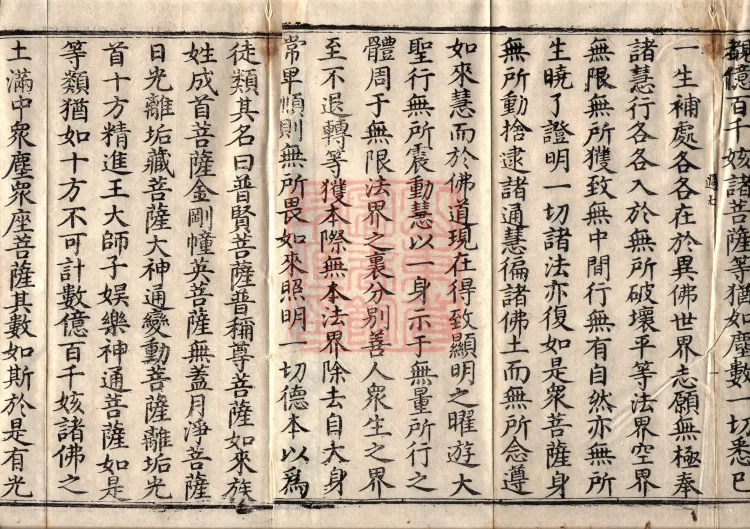 覩億百千姟諸菩薩等猶如塵數一切悉已
一生補處各各在於異佛世界志願無極奉
諸慧行各各入於無所破壞平等法界空界
無限無所獲致無中間行無有自然亦無所
生曉了證明一切諸法亦復如是衆菩薩身
無所動捨逮諸通慧徧諸佛土而無所念遵
如來慧而於佛道現在得致顯明之曜遊大
聖行無所震動慧以一身示于無量所行之
體周于無限法界之裏分別善人衆生之界
至不退轉等獲本際無本法界除去自大身
常卑順則無所畏如來照明一切德本以爲
徒類其名曰普賢菩薩普稱尊菩薩如來族
姓成首菩薩金剛幢英菩薩無蓋月淨菩薩
日光離垢藏菩薩大神通變動菩薩離垢光
首十方精進王大師子娛樂神通菩薩如是
等類猶如十方不可計數億百千姟諸佛之
土滿中衆塵衆座菩薩其數如斯於是有光